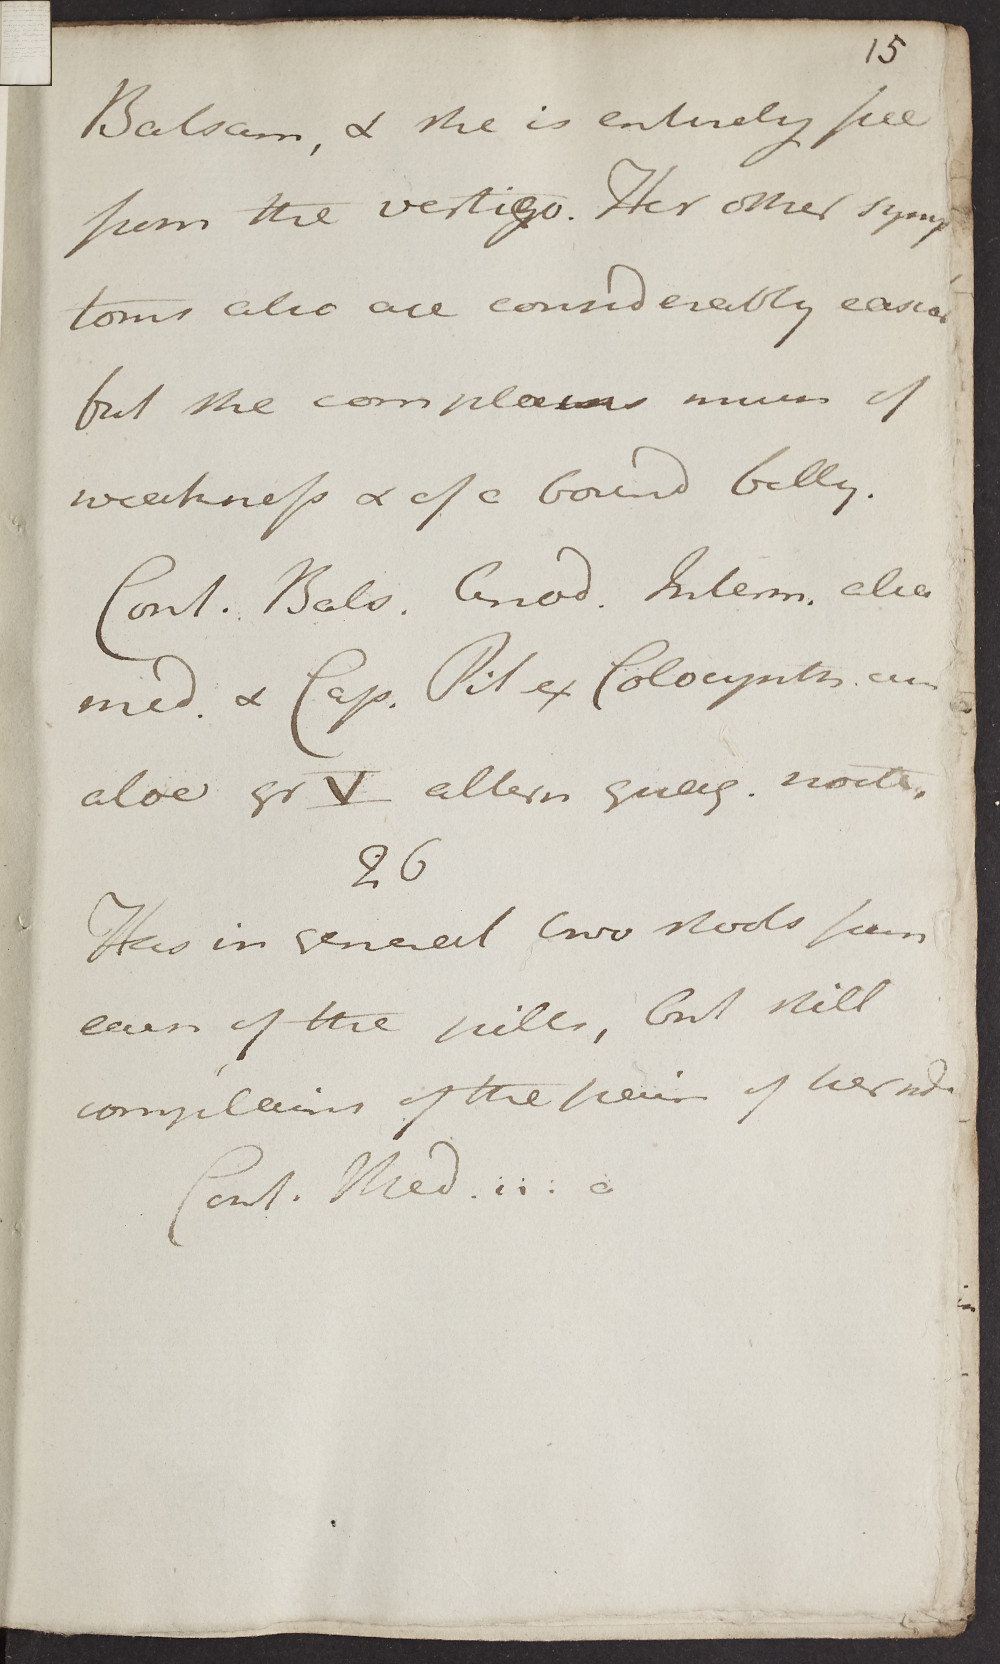 15
Balsam, & she is entirely free
from the vertigo. Her other symp
toms also are considerably easier
but she complains much of
weakness & of a bound belly.
Cont. Bals. Anod. Interm. alia
med. & Cap. Pil ex Colocynth. cum
aloe gr V altern quaq. nocte.
26
Has in general two stools from
each of the pills, but still
complains of the pain of her side
Cont. Med.